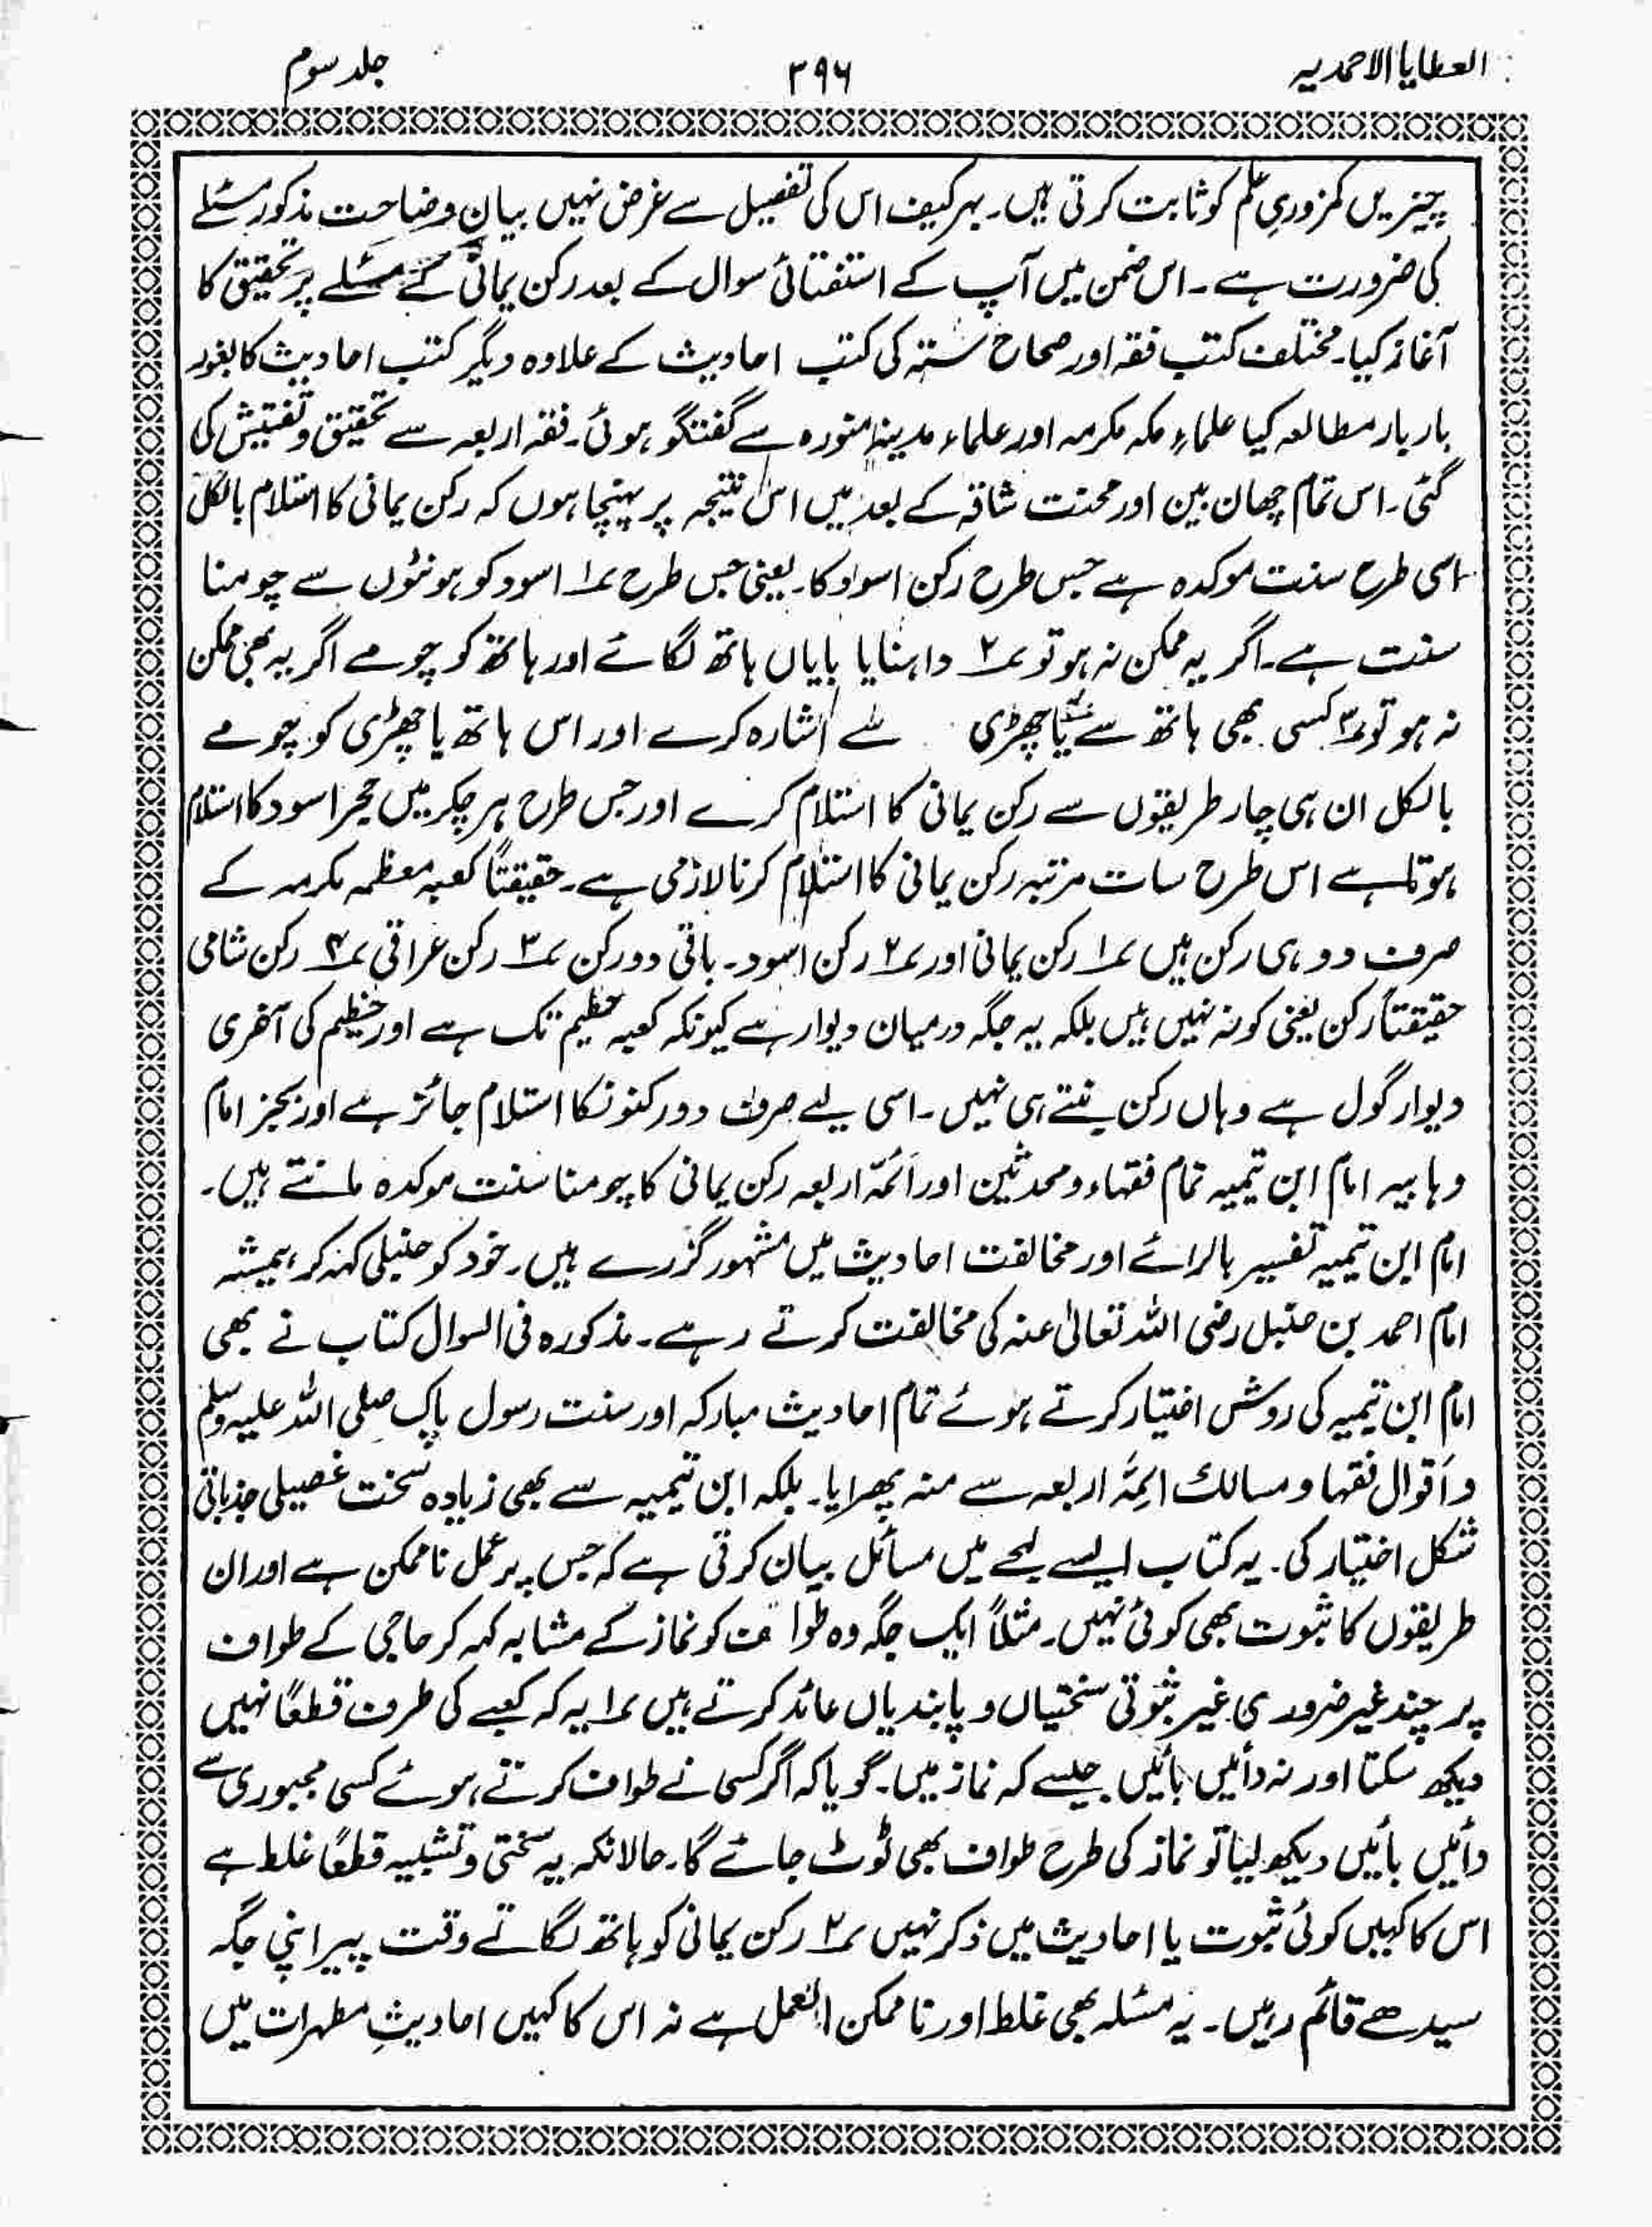 العطایا الاحمدیہ ۳۹۶ جلد سوم
چیزیں کمزوریِ علم کو ثابت کرتی ہیں۔ بہر کیف اس کی تفصیل سے غرض نہیں بیان وضاحت مذکور مسئلے
کی ضرورت ہے۔ اس ضمن میں آپ کے استفتائی سوال کے بعد رکن یمانی کے مسئلے پر تحقیق کا
آغاز کیا۔ مختلف کتب فقہ اور صحاح ستہ کی کتب احادیث کے علاوہ دیگر کتب احادیث کا بغور
بار بار مطالعہ کیا علماءِ مکہ مکرمہ اور علماء مدینہ منورہ سے گفتگو ہوئی۔ فقہ اربعہ سے تحقیق و تفتیش کی
گئی۔ اس تمام چھان بین اور محنت شاقہ کے بعد میں اس نتیجہ پر پہنچا ہوں کہ رکن یمانی کا استلام بالکل
اسی طرح سنت موکدہ ہے جس طرح رکن اسود کا۔ یعنی جس طرح ۱؎ اسود کو ہونٹوں سے چومنا
سنت ہے۔ اگر یہ ممکن نہ ہو تو ۲؎ داہنا یا بایاں ہاتھ لگائے اور ہاتھ کو چومے اگر یہ بھی ممکن
نہ ہو تو ۳؎ کسی بھی ہاتھ سے یا چھڑی سے اشارہ کرے اور اس ہاتھ یا چھڑی کو چومے
بالکل ان ہی چار طریقوں سے رکن یمانی کا استلام کرے اور جس طرح ہر چکر میں حجر اسود کا استلام
ہوتا ہے اس طرح سات مرتبہ رکن یمانی کا استلام کرنا لازمی ہے۔ حقیقتاً کعبہ معظمہ مکرمہ کے
صرف دو ہی رکن ہیں ۱؎ رکن یمانی اور ۲؎ رکن اسود۔ باقی دو رکن ۳؎ رکن عراقی ۴؎ رکن شامی
حقیقتاً رکن یعنی کونہ نہیں ہیں بلکہ یہ جگہ درمیان دیوار ہے کیونکہ کعبہ حطیم تک ہے اور حطیم کی آخری
دیوار گول ہے وہاں رکن بنتے ہی نہیں۔ اسی لیے صرف دو رکنونکا استلام جائز ہے اور بجز امام
وہابیہ امام ابن تیمیہ تمام فقہاء و محدثین اور ائمّہ اربعہ رکن یمانی کا چومنا سنت موکدہ مانتے ہیں۔
امام ابن تیمیہ تفسیر بالرائے اور مخالفت احادیث میں مشہور گزرے ہیں۔ خود کو حنبلی کہہ کر ہمیشہ
امام احمد بن حنبل رضی اللہ تعالیٰ عنہ کی مخالفت کرتے رہے۔ مذکورہ فی السوال کتاب نے بھی
امام ابن تیمیہ کی روش اختیار کرتے ہوئے تمام احادیث مبارکہ اور سنت رسول پاک صلی اللہ علیہ وسلم
و اَقوال فقہا و مسالک ائمّہ اربعہ سے منہ پھرایا۔ بلکہ ابن تیمیہ سے بھی زیادہ سخت غصیلی جذباتی
شکل اختیار کی۔ یہ کتاب ایسے لہجے میں مسائل بیان کرتی ہے کہ جس پر عمل ناممکن ہے اور ان
طریقوں کا ثبوت بھی کوئی نہیں۔ مثلاً ایک جگہ وہ طواف کو نماز کے مشابہ کہہ کر حاجی کے طواف
پر چند غیر ضروری غیر ثبوتی سختیاں و پابندیاں عائد کرتے ہیں ۱؎ یہ کہ کعبے کی طرف قطعًا نہیں
دیکھ سکتا اور نہ دائیں بائیں جیسے کہ نماز میں۔ گویا کہ اگر کسی نے طواف کرتے ہوئے کسی مجبوری سے
دائیں بائیں دیکھ لیا تو نماز کی طرح طواف بھی ٹوٹ جائے گا۔ حالانکہ یہ سختی و تشبیہ قطعًا غلط ہے
اس کا کہیں کوئی ثبوت یا احادیث میں ذکر نہیں ۲؎ رکن یمانی کو ہاتھ لگاتے وقت پیر اپنی جگہ
سیدھے قائم رہیں۔ یہ مسئلہ بھی غلط اور نا ممکن العمل ہے نہ اس کا کہیں احادیثِ مطہرات میں